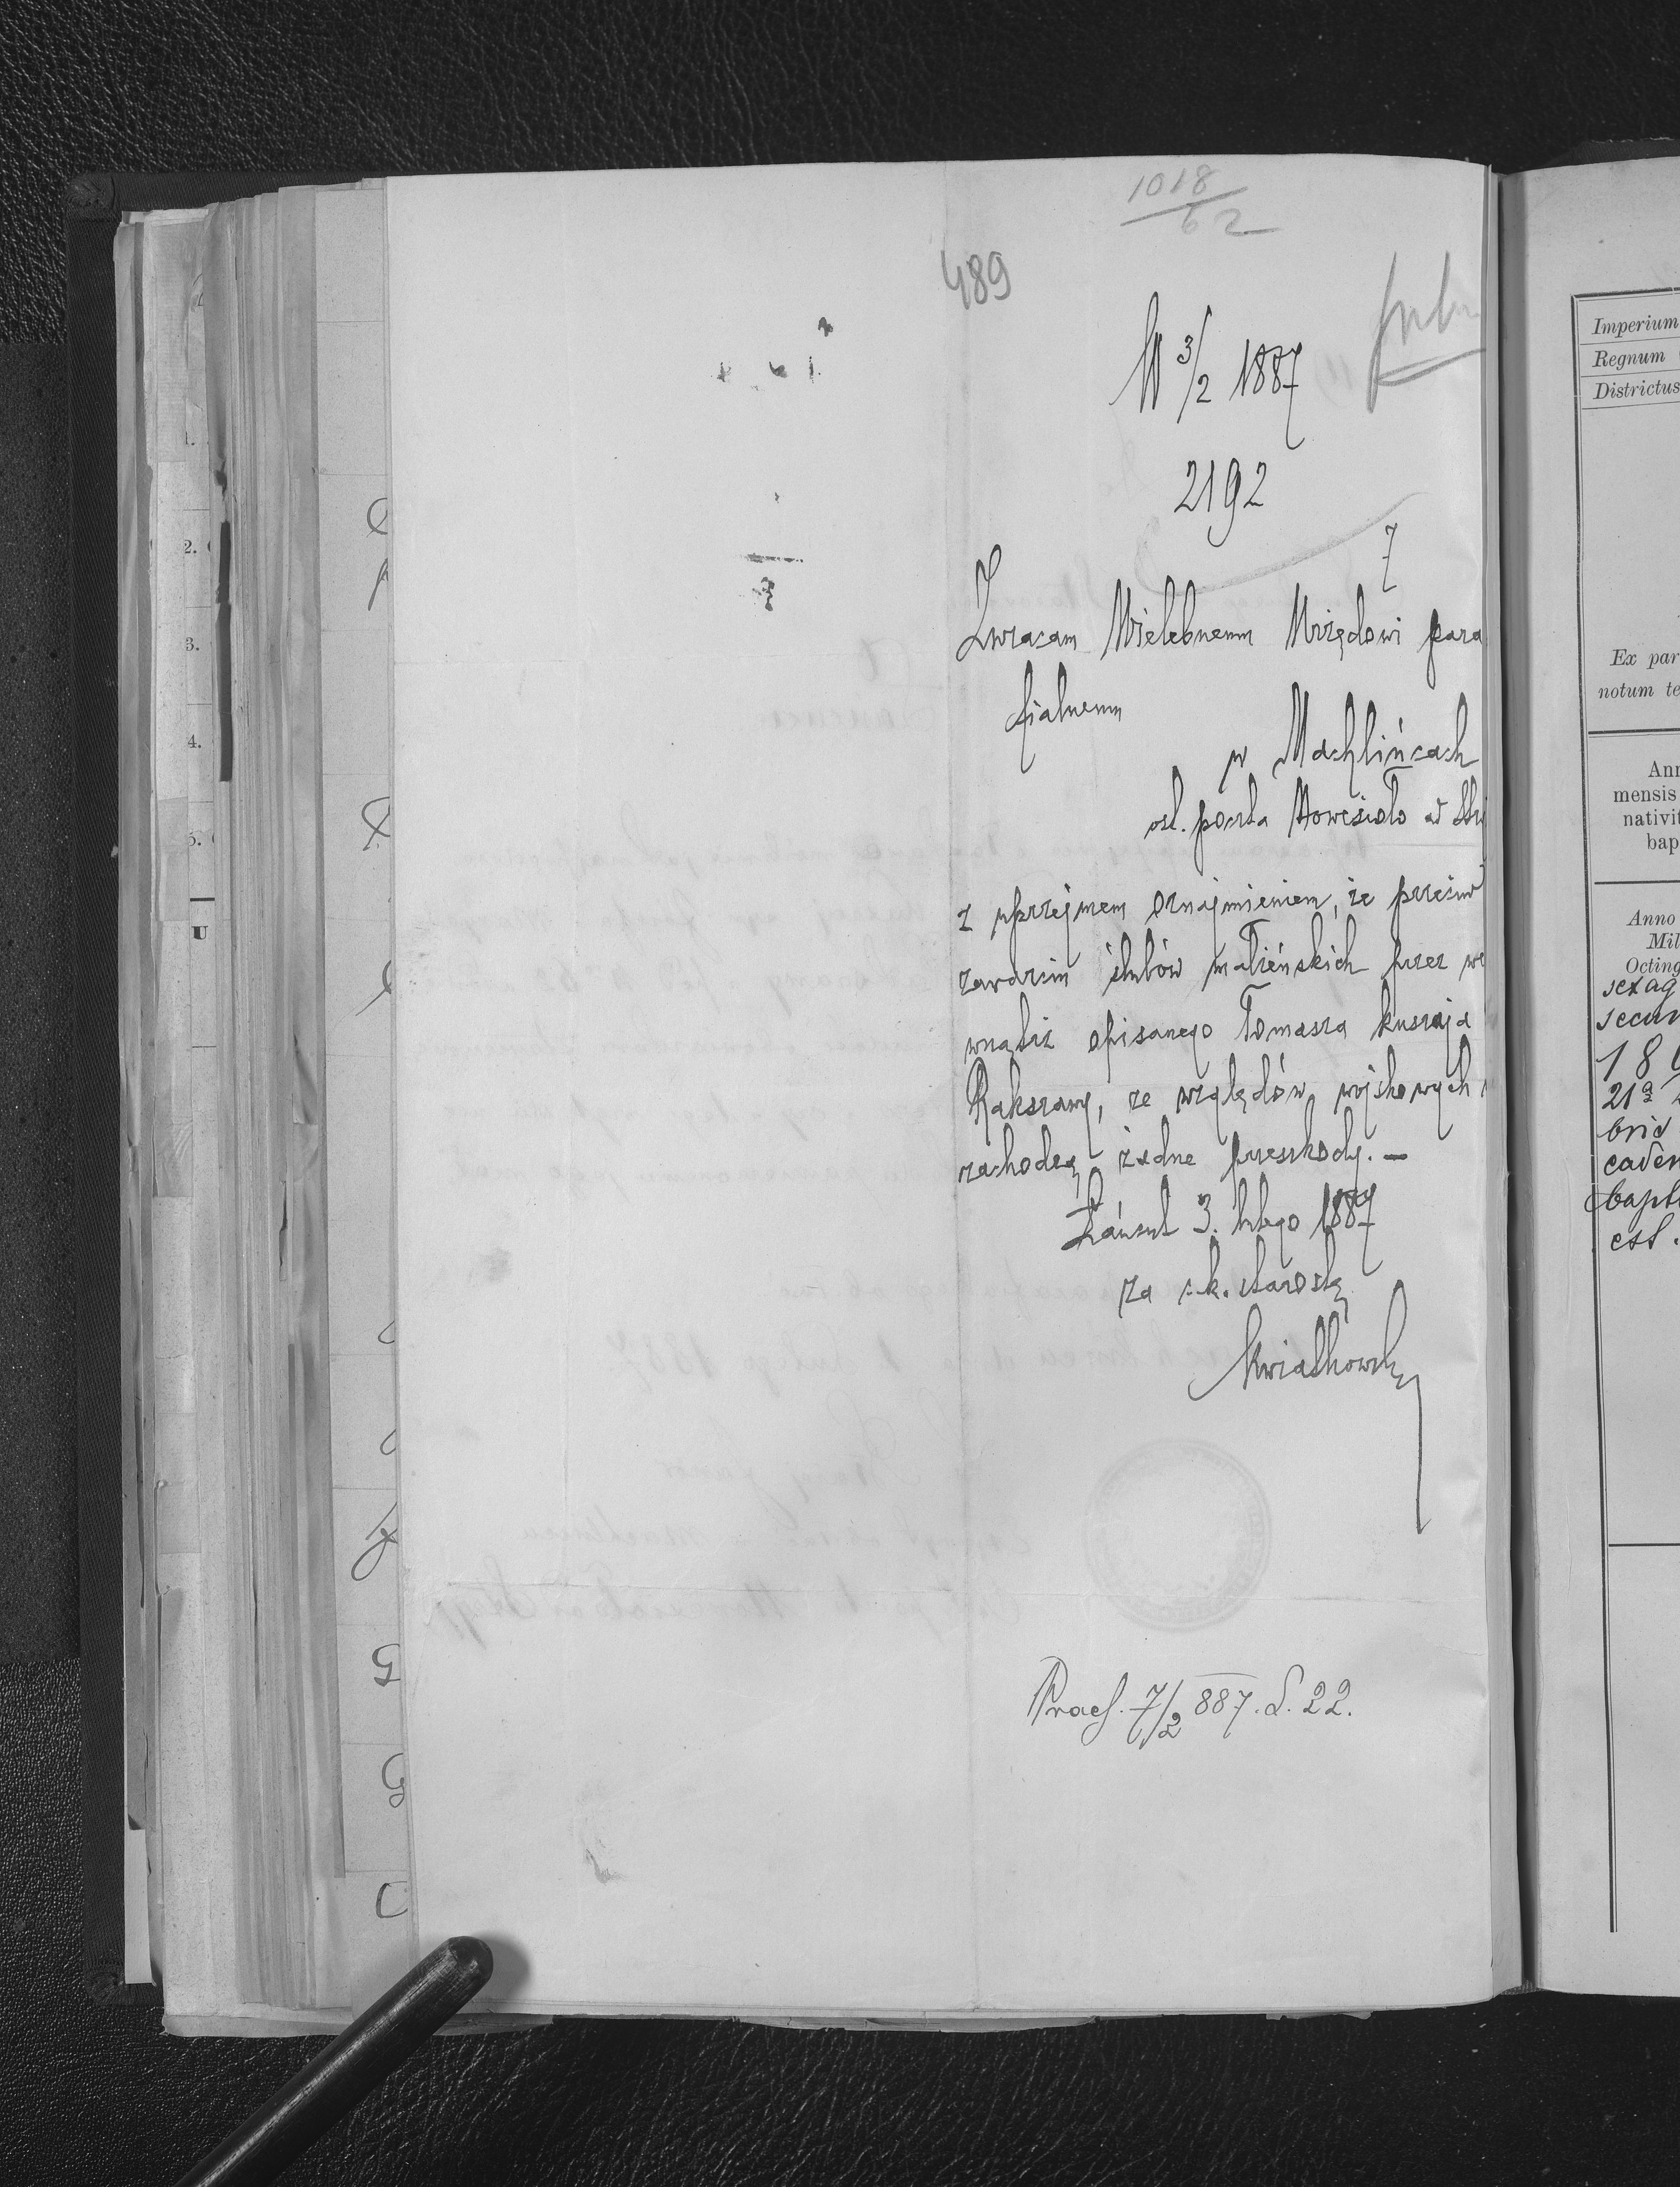 1018
62
489
W 3/2 1887
2192
7
Zwracam Wielebnemu Urzędowi para
fialnemu
w Machlińcach
ost. poczta Nowesioło ad Stry
z uprzejmem oznajmieniem, że przeciw
zawarciu ślubów małżeńskich przez we
wnątrz opisanego Tomasza Kuszaja
Rakszawy, ze względów wojskowych
zachodzą żadne przeszkody. —
Łańcut 3. lutego 1887
za c.k. starostę
Kwiatkowski
Praes. 7/2 887. L. 22.
1.
2.
3.
4.
5.
U
Imperium
Regnum
Districtus
Ex par
notum te
Ann
mensis
nativit
bap
Anno
Mil
Octing
sexag
secun
21a
bris
baptis
est.